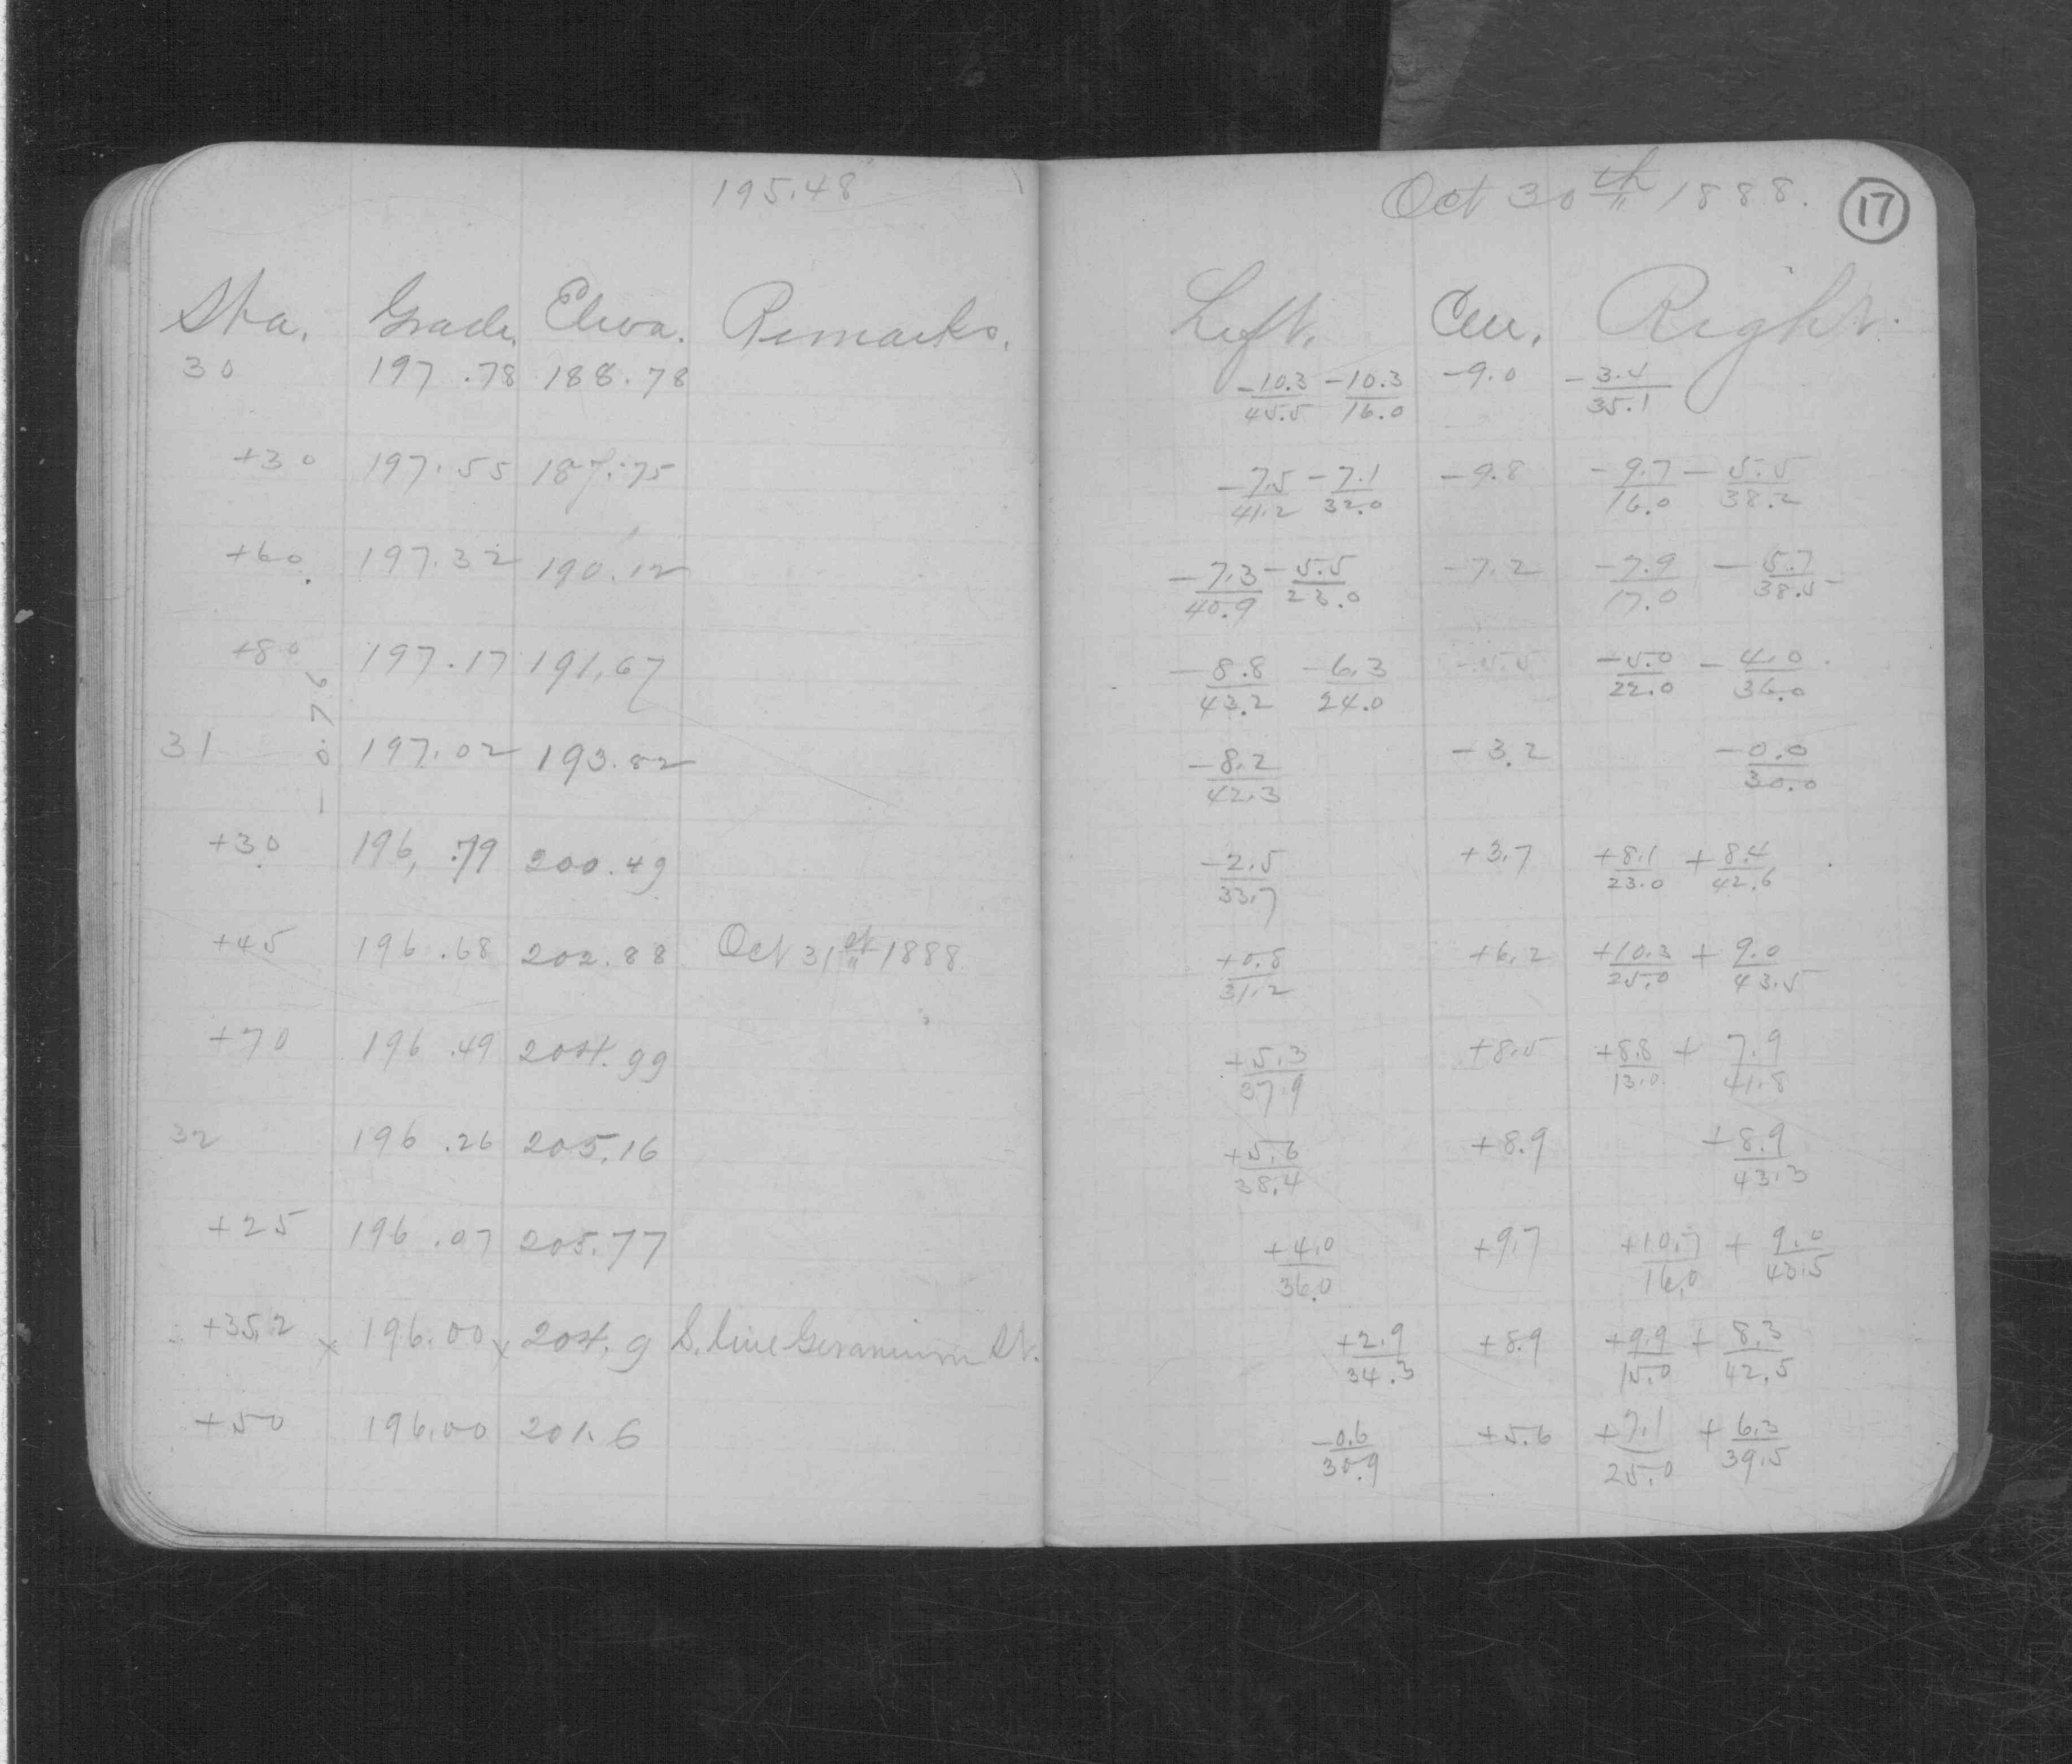 195.48
Oct 30th 1888. 17
Sta. Grade. Eleva. Remarks. Left. Cen. Right.
30 197.78 188.78 -10.3/45.5 -10.3/16.0 -9.0 -3.4/35.1
+30 197.55 187.75 -7.5/41.2 -7.1/32.0 -9.8 -9.7/16.0 -5.5/38.2
+60 197.32 190.12 -7.3/40.9 -5.5/23.0 -7.2 -7.9/17.0 -5.7/38.5
+80 197.17 191.67 -8.8/43.2 -6.3/24.0 -5.5 -5.0/22.0 -4.0/36.0
-0.76
31 197.02 193.82 -8.2/42.3 -3.2 -0.0/30.0
+30 196.79 200.49 -2.5/33.7 +3.7 +8.1/23.0 +8.4/42.6
+45 196.68 202.88 Oct 31st 1888 +0.8/31.2 +6.2 +10.3/25.0 +9.0/43.5
+70 196.49 204.99 +5.3/37.9 +8.5 +8.8/13.0 +7.9/41.8
32 196.26 205.16 +5.6/38.4 +8.9 +8.9/43.3
+25 196.07 205.77 +4.0/36.0 +9.7 +10.7/16.0 +9.0/43.5
+35.2 x 196.00 x 204.9 S. line Geranium St. +2.9/34.3 +8.9 +9.9/15.0 +8.3/42.5
+50 196.00 201.6 -0.6/30.9 +5.6 +7.1/25.0 +6.3/39.5